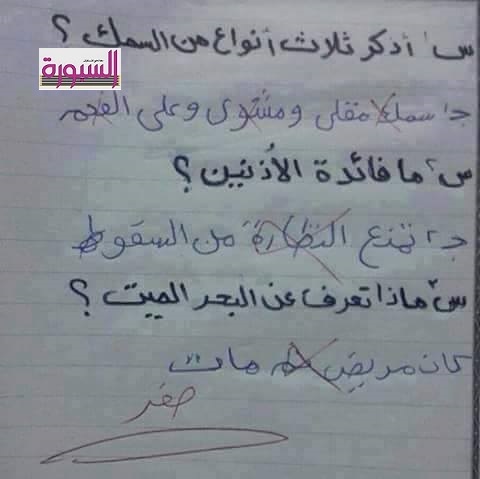 س١ أذكر ثلاث أنواع من السمك ؟
السبورة
ج١ سمك مقلى ومشوى وعلى الفحم
س٢ ما فائدة الأذنين ؟
ج٢ تمنع النظارة من السقوط
س٣ ماذا تعرف عن البحر الميت ؟
كان مريض مات
صفر